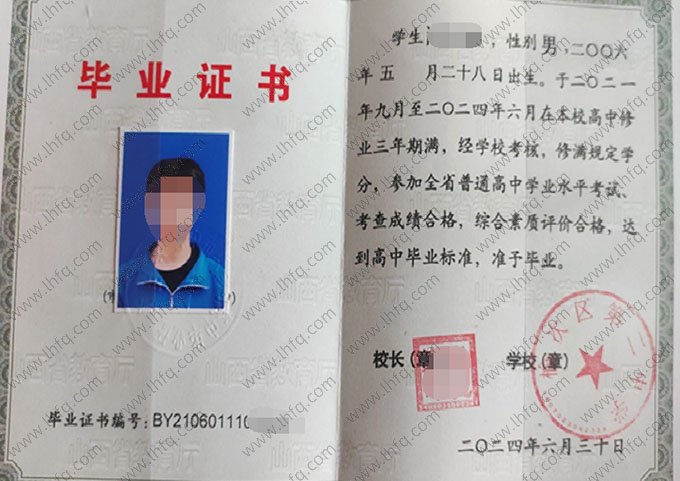 毕业证书
毕业证书编号:BY210601110
学生 ,性别男,二〇〇六
年五 月二十八日出生。于二〇二一
年九月至二〇二四年六月在本校高中修
业三年期满,经学校考核,修满规定学
分,参加全省普通高中学业水平考试、
考查成绩合格,综合素质评价合格,达
到高中毕业标准,准予毕业。
校长(章 学校(章)
二〇二四年六月三十日
www.lhfq.com